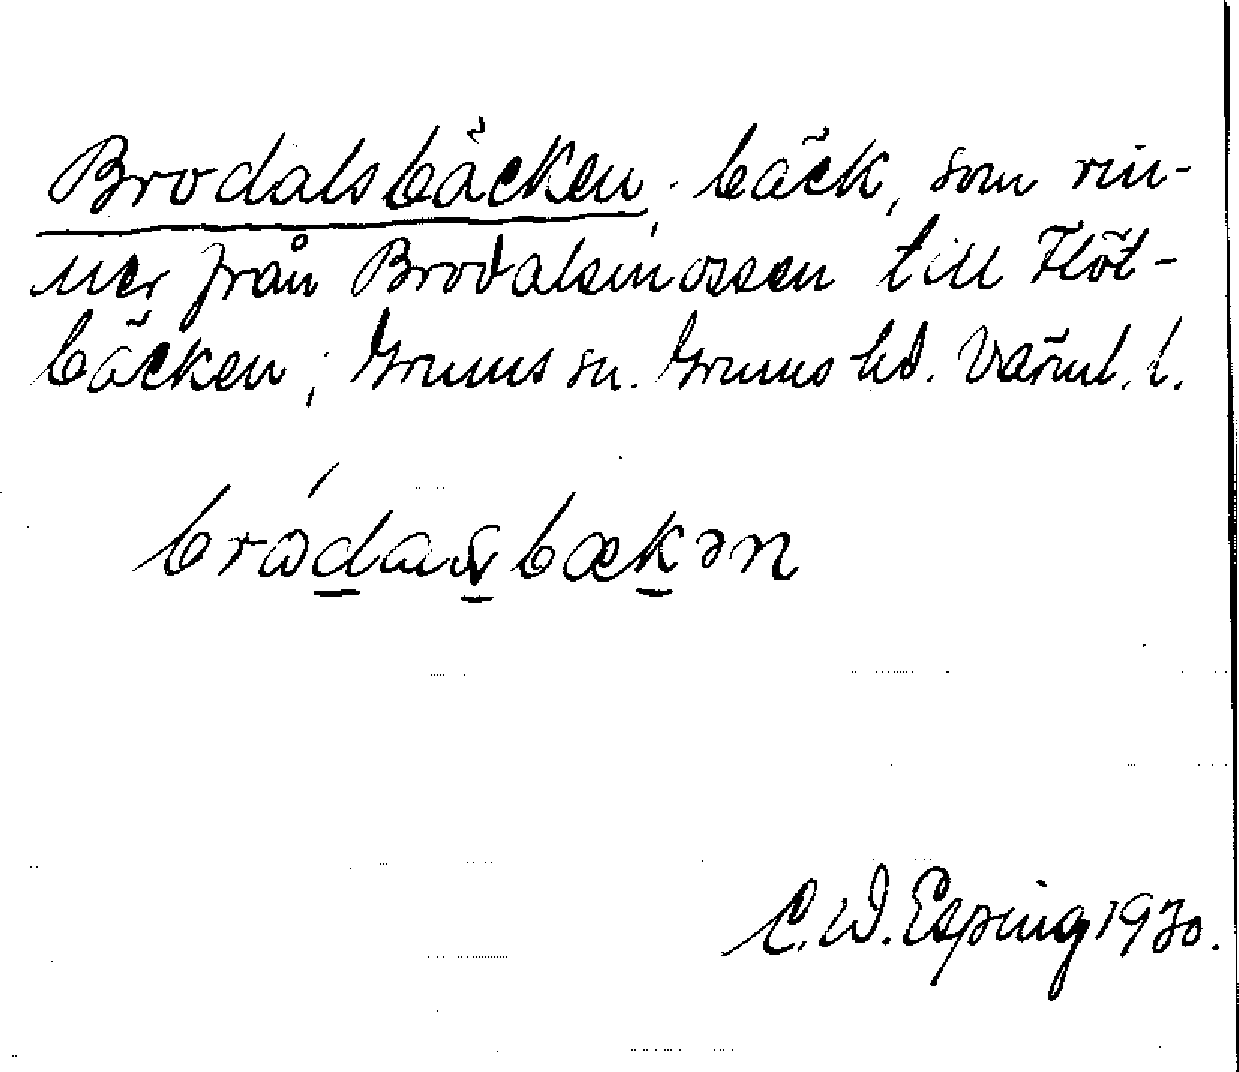 Brodalsbäcken, bäck, som rin-
ner från Brodalsmossen till Flöt-
bäcken; Grums sn. Grums hd. Värml. l.
C. W. Esping 1930.